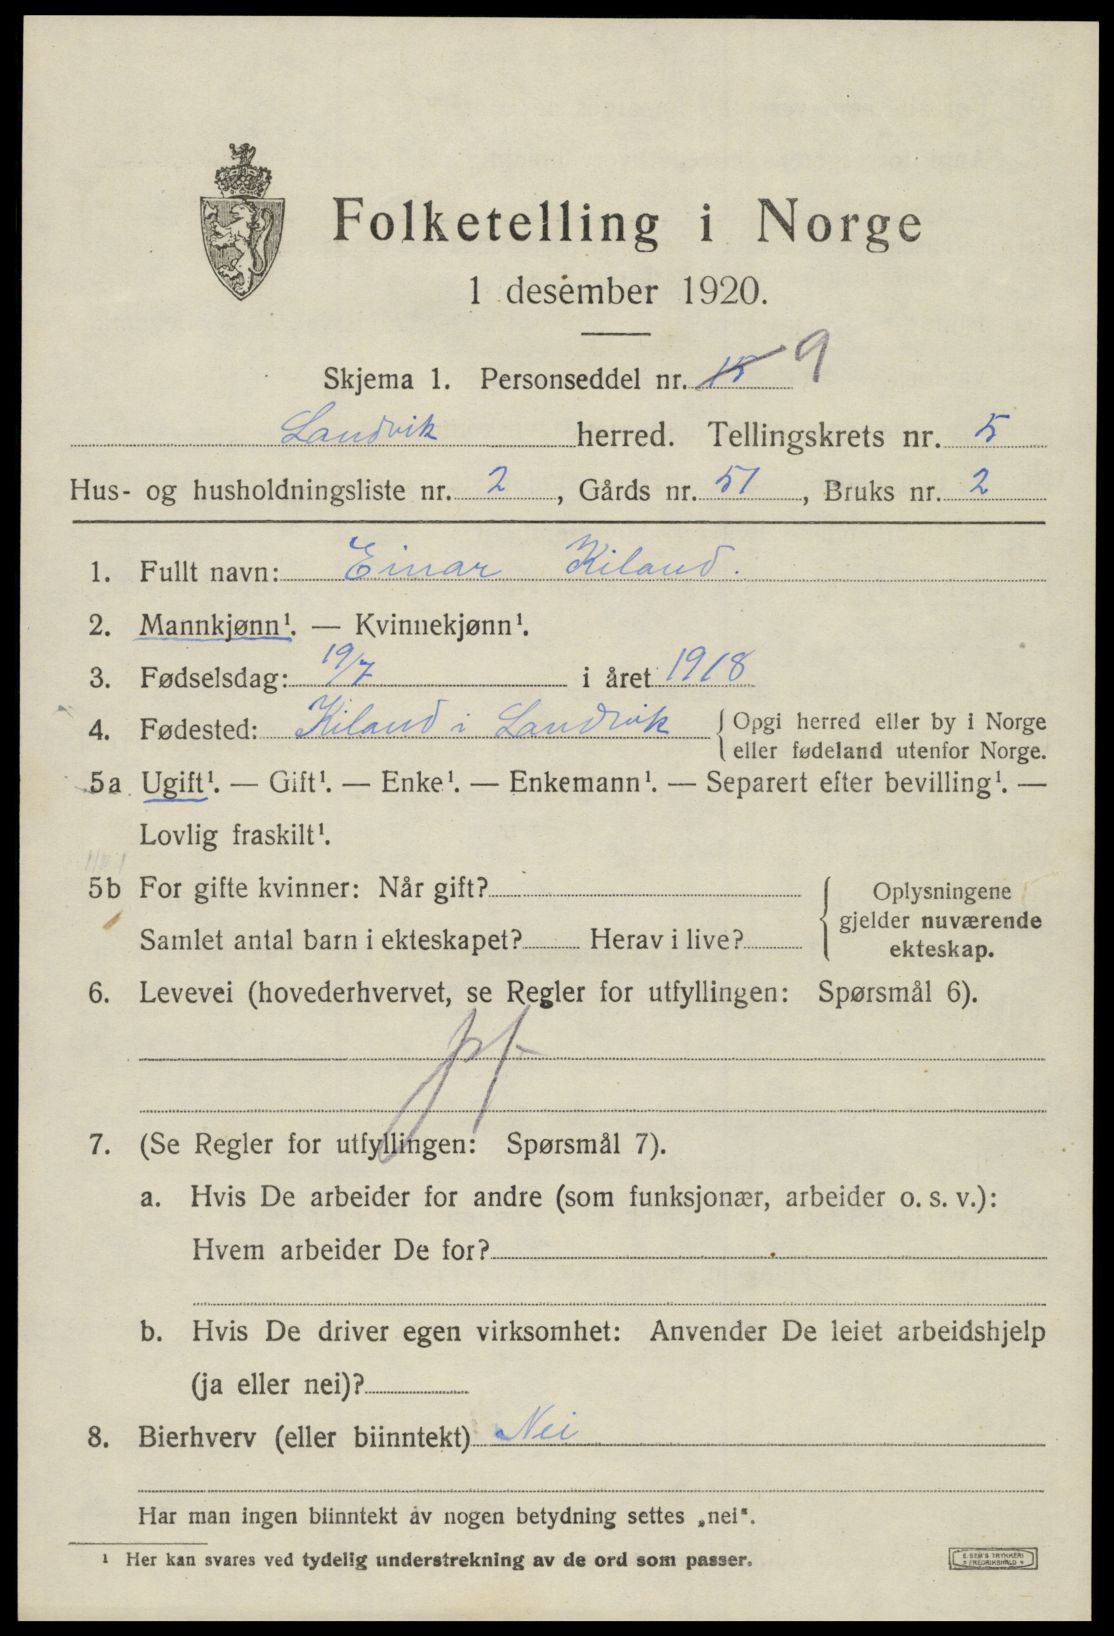 Folketelling i Norge
1 desember 1920.
Skjema 1. Personseddel nr. 15 9
Landvik herred. Tellingskrets nr. 5
Hus- og husholdningsliste nr. 2, Gårds nr. 51, Bruks nr. 2
1. Fullt navn: Einar Kiland.
2. Mannkjønn¹. — Kvinnekjønn¹.
3. Fødselsdag: 19/7 i året 1918
4. Fødested: Kiland i Landvik { Opgi herred eller by i Norge
eller fødeland utenfor Norge.
5a Ugift¹. — Gift¹. — Enke¹. — Enkemann¹. — Separert efter bevilling¹. —
Lovlig fraskilt¹.
5b For gifte kvinner: Når gift?
Samlet antal barn i ekteskapet? Herav i live?
{ Oplysningene
gjelder nuværende
ekteskap.
6. Levevei (hovederhvervet, se Regler for utfyllingen: Spørsmål 6).
pf
7. (Se Regler for utfyllingen: Spørsmål 7).
a. Hvis De arbeider for andre (som funksjonær, arbeider o. s. v.):
Hvem arbeider De for?
b. Hvis De driver egen virksomhet: Anvender De leiet arbeidshjelp
(ja eller nei)?
8. Bierhverv (eller biinntekt) Nei
Har man ingen biinntekt av nogen betydning settes „nei“.
¹ Her kan svares ved tydelig understrekning av de ord som passer.
E. SEM'S TRYKKERI
FREDRIKSHALD